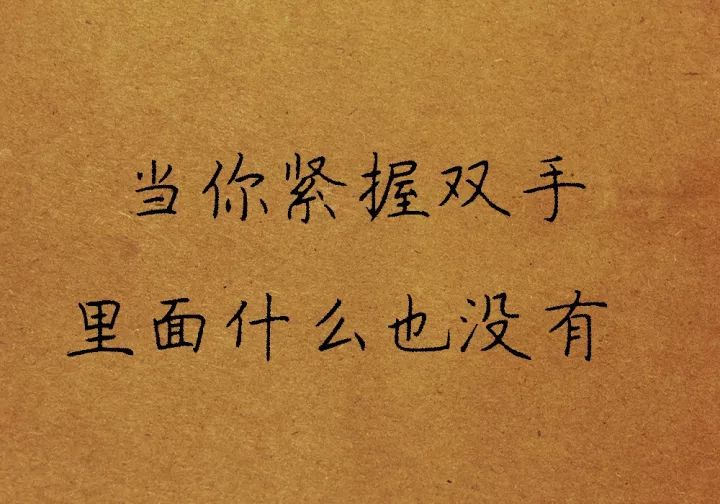 当你紧握双手
里面什么也没有